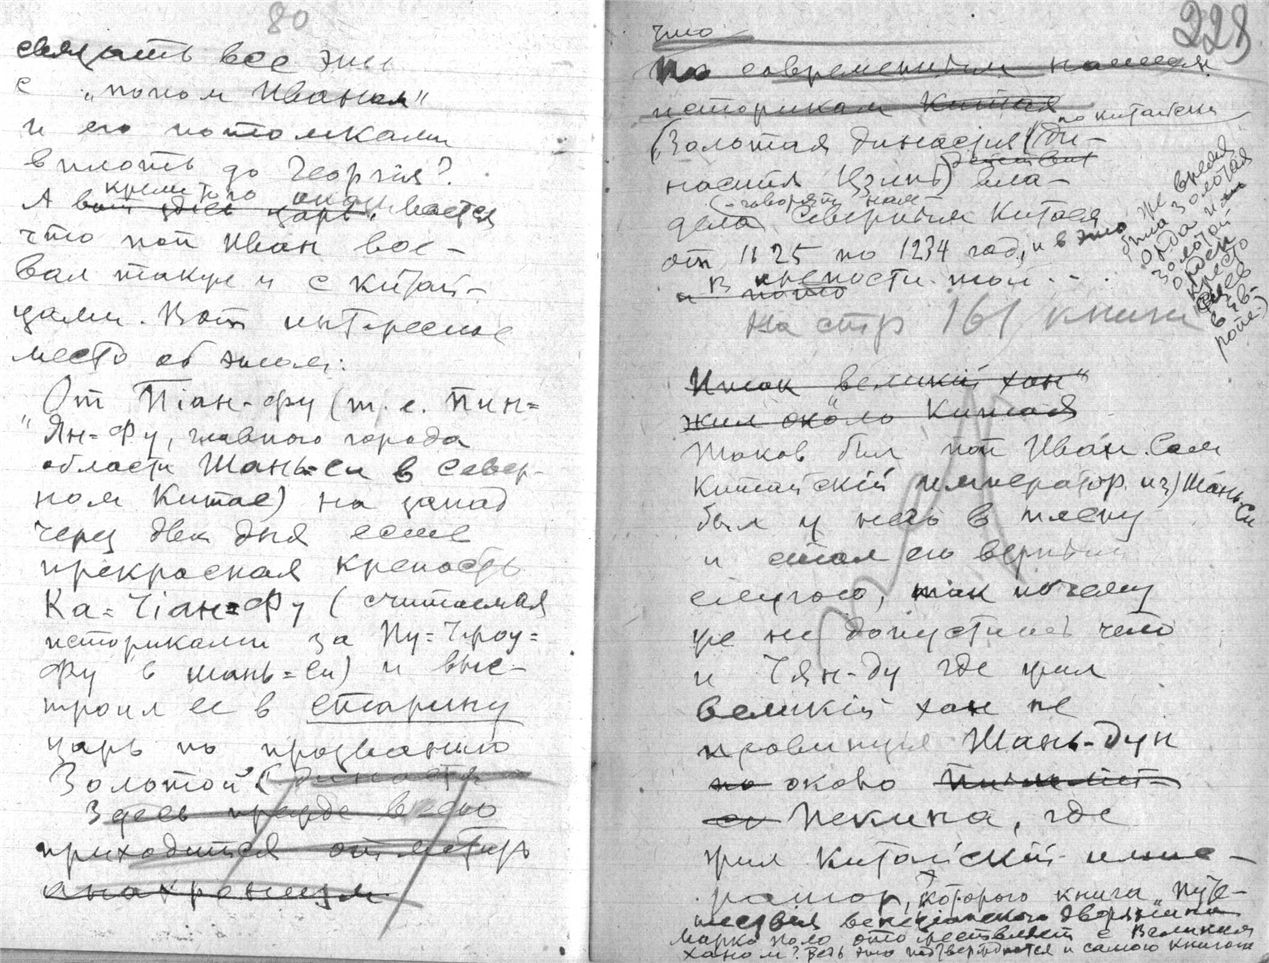 80
связать все это
с „попом Иваном"
и его потомками
вплоть до Георгія?
А кроме того оказывается
вот здесь царь
что поп Иван вое-
вал также и с китай-
цами. Вот интересное
место об этом:
„От Піан-фу (т. е. Пин=
Ян=Фу, главного города
области Шань=Си в Север-
ном Китае) на запад
через два дня есть
прекрасная крепость
Ка=Чіан=Фу (считаемая
историками за Пу=Чроу=
Фу в Шань=Си) и выс-
троил ее в старину
царь по прозванию
Золотой" (династ
Здесь прежде всего
приходится отметить
анахронизм
228
что
По современным нашим
историкам Китая
по китайски
(Золотая династия (ди-
настия Цзинь) действит вла-
(говорят нам
дела Северным Китаем
от 1125 по 1234 год, и в это же время
была Золотая
орда и
золотой
орден
кресто
в Ев-
ропе.)
В крепости той . -
и
На стр 161 книги
Итак „великій хан"
жил около Китая
Таков был поп Иван. Сам
Китайскій император из Шань-Си
был у него в плену
и стал его верным
слугою, так почему
же не допустить что
и Чян-ду где жил
великій хан не
провинция Шань-дун
по около
Пекина, где
жил Китайскій импе-
ратор, которого книга „Путе-
шествия венеціанского дворянина
Марко Поло отождествляет с Великим
Ханом? Ведь это подтверждается и самою книгою